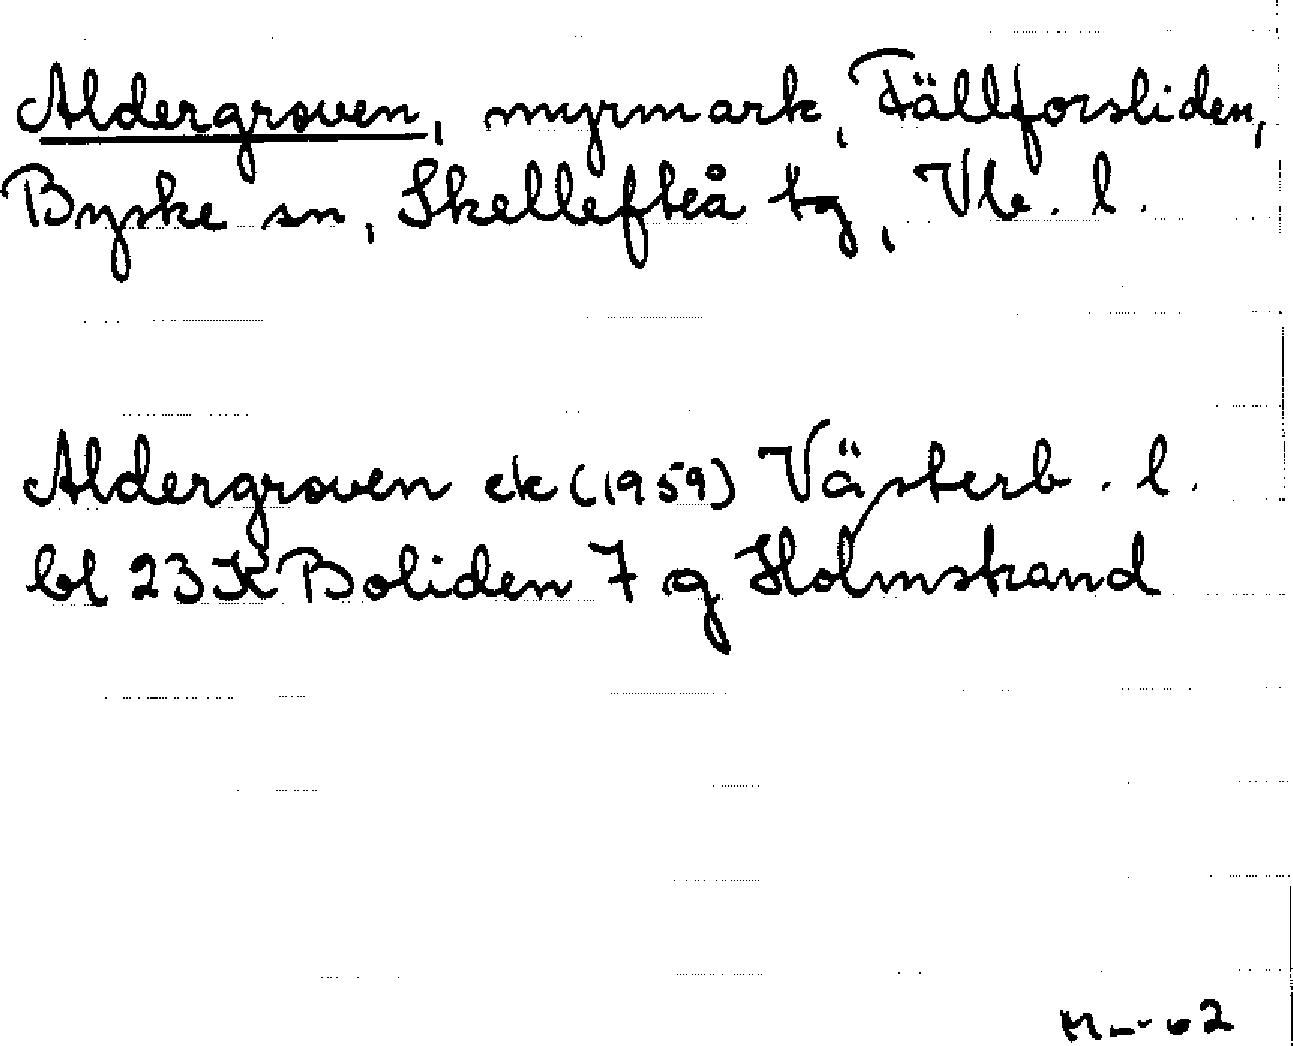 Aldergroven, myrmark, Fällforsliden,
Byske sn, Skellefteå tg, Vb. l.
Aldergroven ek (1959) Västerb. l.
bl 23 K Boliden 7 g Holmstrand